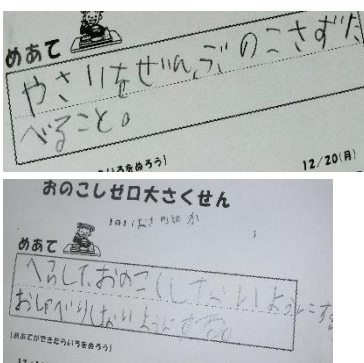 めあて
やさいをぜんぶのこさずた
べること。
いろをぬろう]
12/20(月)
おのこしゼロ大さくせん
めあて
へらして、おのこししないようにする
おしゃべりしないようにする。
[めあてができたらいろをぬろう]